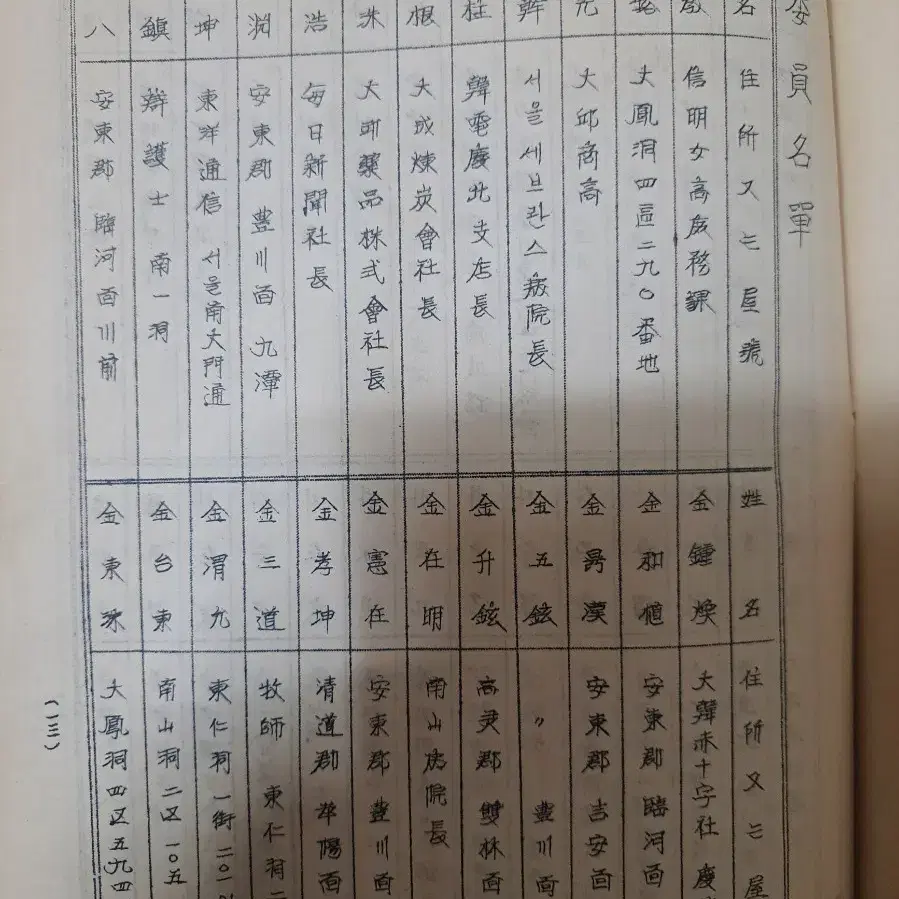 委員名單
名 住所又는屋號
信明女高庶務課
大鳳洞四區二九〇番地
元 大邱商高
서울세브란스病院長
柱 韓電慶北支店長
根 大成煉炭會社長
洙 大邱藥品株式會社長
浩 每日新聞社長
淵 安東郡 豊川面 九潭
坤 東洋通信 서울南大門通
鎭 辯護士 南一洞
八 安東郡 臨河面川前
姓名 住所又는屋
金鍾煥 大韓赤十字社 慶
金和植 安東郡 臨河面
金漢 安東郡 吉安面
金五鉉 〃 豊川面
金升鉉 高灵郡 雙林面
金在明 南山病院長
金憲在 安東郡 豊川面
金孝坤 清道郡 面
金三道 牧師 東仁洞二
金渭九 東仁洞一街 二〇一
金台東 南山洞二区 一〇五
金東洙 大鳳洞四区五九四
(一三)